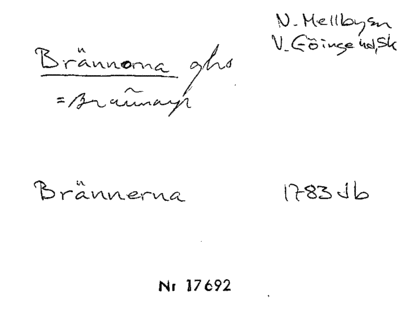 N. Mellby sn
V. Göinge hd, Sk
Brännorna ghs
=
Brännerna 1783 Jb
Nr 17692